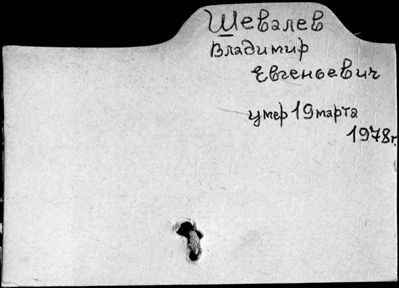 Шевалев
Владимир
Евгеньевич
умер 19 марта
1978г.